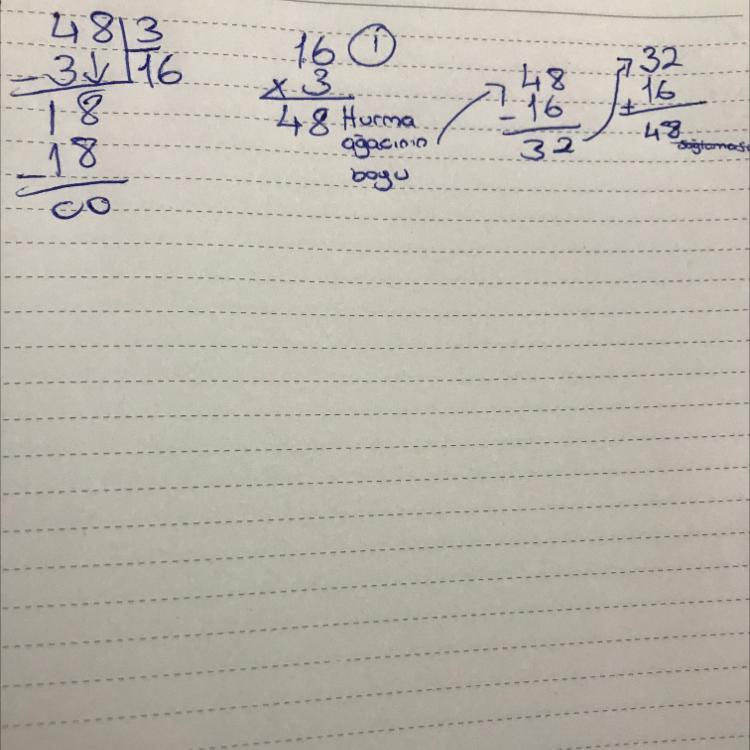 48 3
-3↓ 16
18
-18
00
16 ①
x 3
48 Hurma
ağacının
boyu
48
-16
32
32
16
+
48
sağlaması